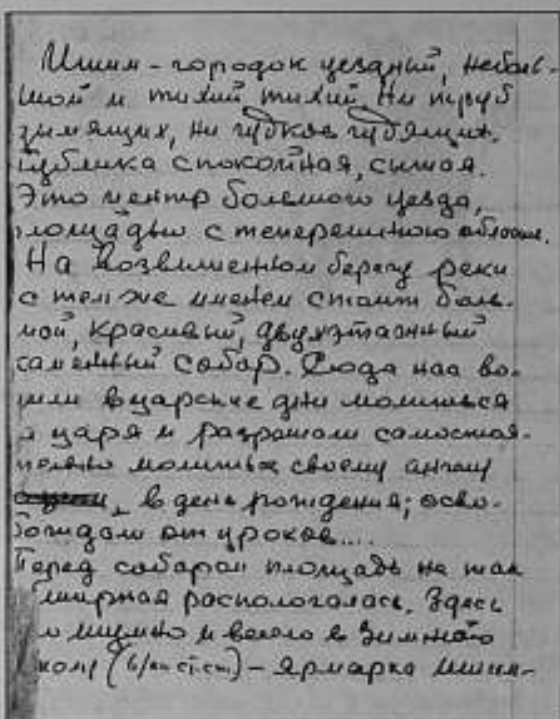 Ишим – городок уездный, неболь-
шой и тихий, тихий. Ни труб
дымящих, ни гудков гудящих.
Публика спокойная, сытая.
Это центр большого уезда,
площадью с теперешнюю область.
На возвышенном берегу реки
с тем же именем стоит боль-
шой, красивый, двухэтажный
каменный собор. Сюда нас во-
дили в царские дни молиться
за царя и разрешали самостоя-
тельно молиться своему ангелу
в день рождения; осво-
бождали от уроков....
Перед собором площадь не так
обширная распологалась. Здесь
и шумно и весело в Зимнего
– Ярмарка Ишим-